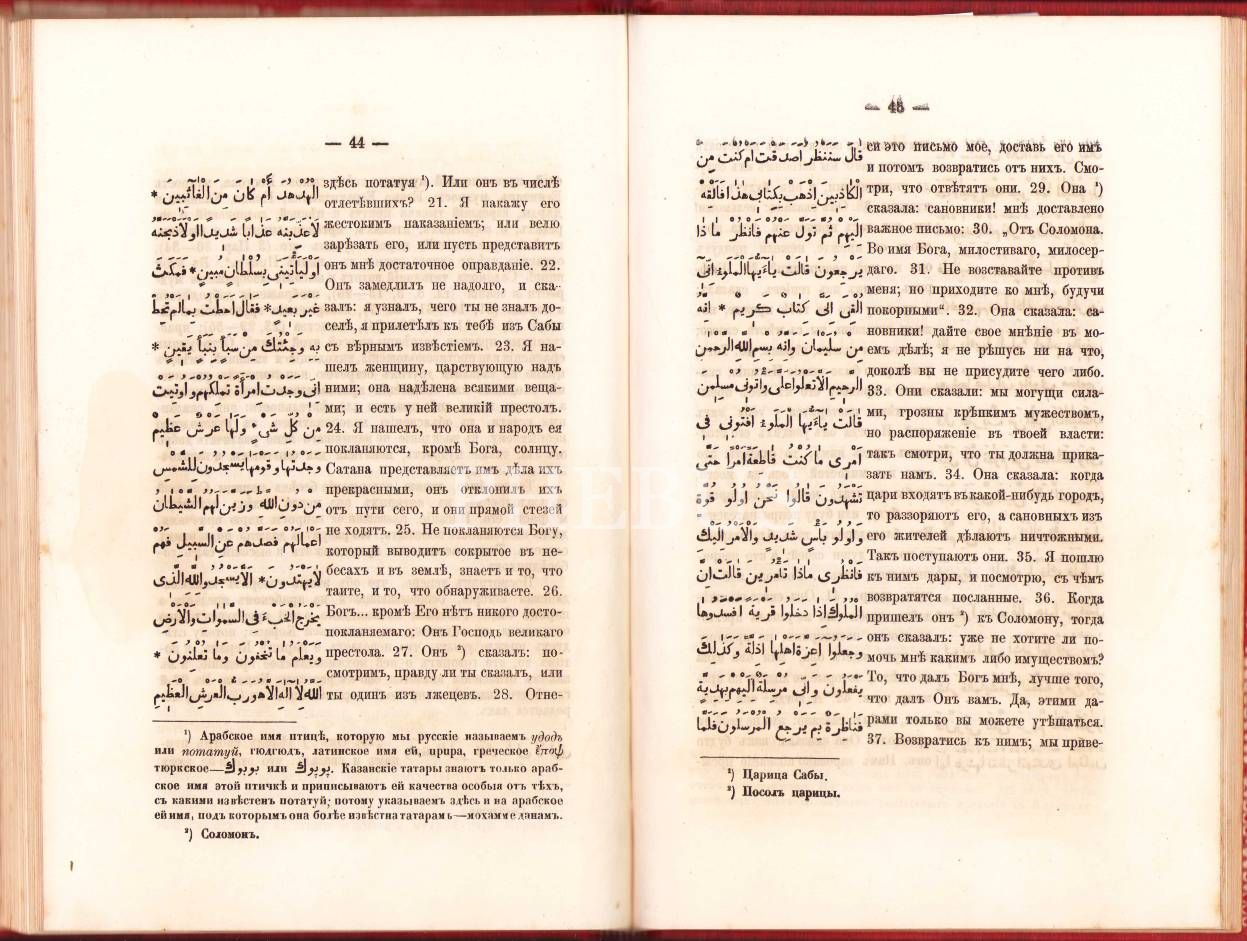 — 44 —
الْهُدْهُدَ أَمْ كَانَ مِنَ الْغَائِبِينَ *
لَأُعَذِّبَنَّهُ عَذَابًا شَدِيدًا أَوْ لَأَذْبَحَنَّهُ
أَوْ لَيَأْتِيَنِّي بِسُلْطَانٍ مُبِينٍ * فَمَكَثَ
غَيْرَ بَعِيدٍ * فَقَالَ أَحَطْتُ بِمَا لَمْ تُحِطْ
بِهِ وَجِئْتُكَ مِنْ سَبَأٍ بِنَبَأٍ يَقِينٍ *
إِنِّي وَجَدْتُ امْرَأَةً تَمْلِكُهُمْ وَأُوتِيَتْ
مِنْ كُلِّ شَيْءٍ وَلَهَا عَرْشٌ عَظِيمٌ
وَجَدْتُهَا وَقَوْمَهَا يَسْجُدُونَ لِلشَّمْسِ
مِنْ دُونِ اللَّهِ وَزَيَّنَ لَهُمُ الشَّيْطَانُ
أَعْمَالَهُمْ فَصَدَّهُمْ عَنِ السَّبِيلِ فَهُمْ
لَا يَهْتَدُونَ * أَلَّا يَسْجُدُوا لِلَّهِ الَّذِي
يُخْرِجُ الْخَبْءَ فِي السَّمٰوَاتِ وَالْأَرْضِ
وَيَعْلَمُ مَا تُخْفُونَ وَمَا تُعْلِنُونَ *
اللَّهُ لَا إِلٰهَ إِلَّا هُوَ رَبُّ الْعَرْشِ الْعَظِيمِ
здѣсь потатуя ¹). Или онъ въ числѣ
отлетѣвшихъ? 21. Я накажу его
жестокимъ наказаніемъ; или велю
зарѣзать его, или пусть представитъ
онъ мнѣ достаточное оправданіе. 22.
Онъ замедлилъ не надолго, и ска-
залъ: я узналъ, чего ты не зналъ до-
селѣ, я прилетѣлъ къ тебѣ изъ Сабы
съ вѣрнымъ извѣстіемъ. 23. Я на-
шелъ женщину, царствующую надъ
ними; она надѣлена всякими веща-
ми; и есть у ней великій престолъ.
24. Я нашелъ, что она и народъ ея
покланяются, кромѣ Бога, солнцу.
Сатана представляетъ имъ дѣла ихъ
прекрасными, онъ отклонилъ ихъ
отъ пути сего, и они прямой стезей
не ходятъ. 25. Не покланяются Богу,
который выводитъ сокрытое въ не-
бесахъ и въ землѣ, знаетъ и то, что
таите, и то, что обнаруживаете. 26.
Богъ... кромѣ Его нѣтъ никого досто-
покланяемаго: Онъ Господь великаго
престола. 27. Онъ ²) сказалъ: по-
смотримъ, правду ли ты сказалъ, или
ты одинъ изъ лжецевъ. 28. Отне-
¹) Арабское имя птицѣ, которую мы русскіе называемъ удодъ
или потатуй, гюдгюдъ, латинское имя ей, upupa, греческое ἔποψ
тюркское—بوبوك или بوبوك. Казанскіе татары знаютъ только араб-
ское имя этой птичкѣ и приписываютъ ей качества особыя отъ тѣхъ,
съ какими извѣстенъ потатуй; потому указываемъ здѣсь и на арабское
ей имя, подъ которымъ она болѣе извѣстна татарамъ—мохаммеданамъ.
²) Соломонъ.
— 45 —
قَالَ سَنَنْظُرُ أَصَدَقْتَ أَمْ كُنْتَ مِنَ
الْكَاذِبِينَ اذْهَبْ بِكِتَابِي هٰذَا فَأَلْقِهْ
إِلَيْهِمْ ثُمَّ تَوَلَّ عَنْهُمْ فَانْظُرْ مَاذَا
يَرْجِعُونَ قَالَتْ يَاءَيُّهَا الْمَلَؤُا إِنِّي
أُلْقِيَ إِلَيَّ كِتَابٌ كَرِيمٌ * إِنَّهُ
مِنْ سُلَيْمَانَ وَإِنَّهُ بِسْمِ اللَّهِ الرَّحْمٰنِ
الرَّحِيمِ أَلَّا تَعْلُوا عَلَيَّ وَأْتُونِي مُسْلِمِينَ
قَالَتْ يَاءَيُّهَا الْمَلَؤُا أَفْتُونِي فِي
أَمْرِي مَا كُنْتُ قَاطِعَةً أَمْرًا حَتَّى
تَشْهَدُونَ قَالُوا نَحْنُ أُولُو قُوَّةٍ
وَأُولُو بَأْسٍ شَدِيدٍ وَالْأَمْرُ إِلَيْكِ
فَانْظُرِي مَاذَا تَأْمُرِينَ قَالَتْ إِنَّ
الْمُلُوكَ إِذَا دَخَلُوا قَرْيَةً أَفْسَدُوهَا
وَجَعَلُوا أَعِزَّةَ أَهْلِهَا أَذِلَّةً وَكَذٰلِكَ
يَفْعَلُونَ وَإِنِّي مُرْسِلَةٌ إِلَيْهِمْ بِهَدِيَّةٍ
فَنَاظِرَةٌ بِمَ يَرْجِعُ الْمُرْسَلُونَ فَلَمَّا
ей это письмо мое, доставь его имъ
и потомъ возвратись отъ нихъ. Смо-
три, что отвѣтятъ они. 29. Она ¹)
сказала: сановники! мнѣ доставлено
важное письмо: 30. „Отъ Соломона.
Во имя Бога, милостиваго, милосер-
даго. 31. Не возставайте противъ
меня; но приходите ко мнѣ, будучи
покорными“. 32. Она сказала: са-
новники! дайте свое мнѣніе въ мо-
емъ дѣлѣ; я не рѣшусь ни на что,
доколѣ вы не присудите чего либо.
33. Они сказали: мы могущи сила-
ми, грозны крѣпкимъ мужествомъ,
но распоряженіе въ твоей власти:
такъ смотри, что ты должна прика-
зать намъ. 34. Она сказала: когда
цари входятъ въ какой-нибудь городъ,
то раззоряютъ его, а сановныхъ изъ
его жителей дѣлаютъ ничтожными.
Такъ поступаютъ они. 35. Я пошлю
къ нимъ дары, и посмотрю, съ чѣмъ
возвратятся посланные. 36. Когда
пришелъ онъ ²) къ Соломону, тогда
онъ сказалъ: уже не хотите ли по-
мочь мнѣ какимъ либо имуществомъ?
То, что далъ Богъ мнѣ, лучше того,
что далъ Онъ вамъ. Да, этими да-
рами только вы можете утѣшаться.
37. Возвратись къ нимъ; мы приве-
¹) Царица Сабы.
²) Посолъ царицы.